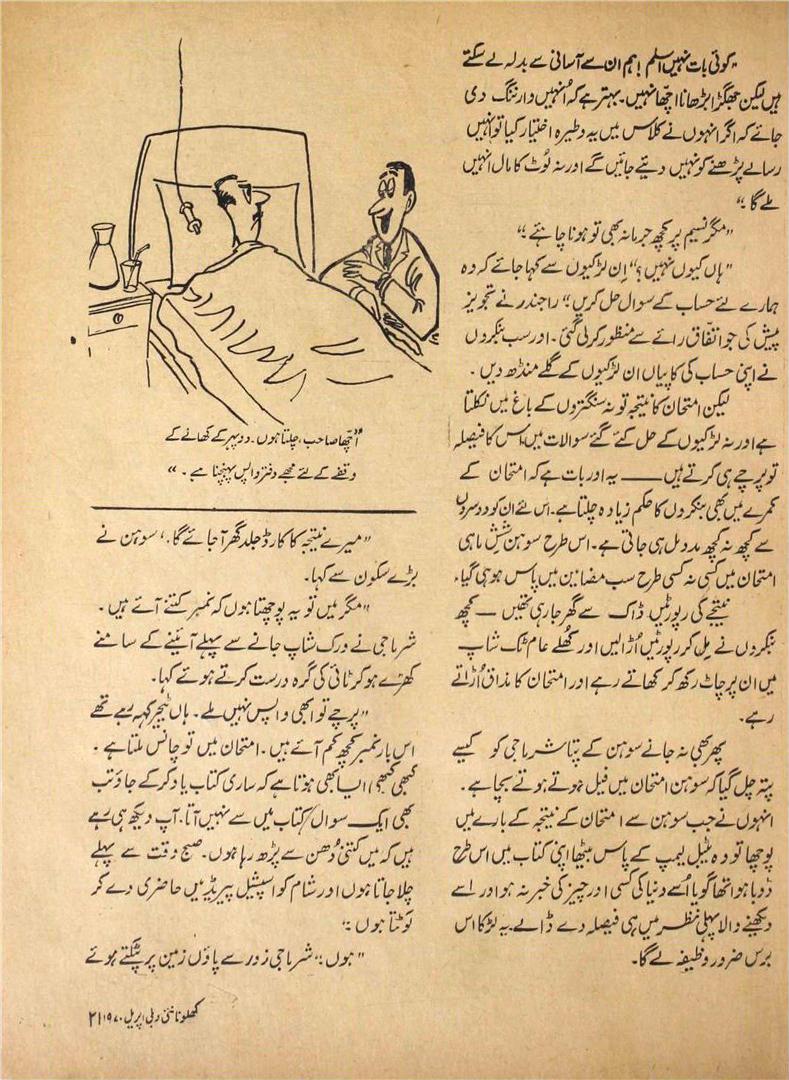 "کوئی بات نہیں اسلم! ہم ان سے آسانی سے بدلہ لے سکتے
ہیں لیکن جھگڑا بڑھانا اچھا نہیں۔ بہتر ہے کہ اُنہیں وارننگ دی
جائے کہ اگر انہوں نے کلاس میں یہ وطیرہ اختیار کیا تو انہیں
رسالے پڑھنے کو نہیں دیئے جائیں گے اور نہ لُوٹ کا مال انہیں
ملے گا۔"
"مگر نسیم پر کچھ جرمانہ بھی تو ہونا چاہئے۔"
"ہاں کیوں نہیں؟" اِن لڑکیوں سے کہا جائے کہ وہ
ہمارے لئے حساب کے سوال حل کریں۔" راجندر نے تجویز
پیش کی جو اتفاق رائے سے منظور کر لی گئی۔ اور سب بنکروں
نے اپنی حساب کی کاپیاں ان لڑکیوں کے گلے منڈھ دیں۔
لیکن امتحان کا نتیجہ تو نہ سنگتروں کے باغ میں نکلتا
ہے اور نہ لڑکیوں کے حل کئے گئے سوالات میں، اس کا فیصلہ
تو پرچے ہی کرتے ہیں —— یہ اور بات ہے کہ امتحان کے
کمرے میں بھی بنکروں کا حکم زیادہ چلتا ہے۔ اس لئے ان کو دوسروں
سے کچھ نہ کچھ مدد مل ہی جاتی ہے۔ اس طرح سوہن شش ماہی
امتحان میں کسی نہ کسی طرح سب مضامین میں پاس ہو ہی گیا۔
نتیجے کی رپورٹیں ڈاک سے گھر جا رہی تھیں —— کچھ
بنکروں نے مل کر رپورٹیں اُڑا لیں اور کھلے عام ٹک شاپ
میں ان پر چاٹ رکھ کر کھاتے رہے اور امتحان کا مذاق اُڑاتے
رہے۔
پھر بھی نہ جانے سوہن کے پتا شرما جی کو کیسے
پتہ چل گیا کہ سوہن امتحان میں فیل ہوتے ہوتے بچا ہے۔
انہوں نے جب سوہن سے امتحان کے نتیجہ کے بارے میں
پوچھا تو وہ ٹیبل لیمپ کے پاس بیٹھا اپنی کتاب میں اس طرح
ڈوبا ہوا تھا گویا اُسے دنیا کی کسی اور چیز کی خبر نہ ہو اور اسے
دیکھنے والا پہلی نظر میں ہی فیصلہ دے ڈالے۔ یہ لڑکا اس
برس ضرور وظیفہ لے گا۔
"اچھا صاحب، چلتا ہوں۔ دوپہر کے کھانے کے
وقفے کے لئے مجھے دفتر واپس پہنچنا ہے۔"
"میرے نتیجہ کا کارڈ جلد گھر آ جائے گا۔" سوہن نے
بڑے سکون سے کہا۔
"مگر میں تو یہ پوچھتا ہوں کہ نمبر کتنے آئے ہیں۔
شرما جی نے ورک شاپ جانے سے پہلے آئینے کے سامنے
کھڑے ہو کر ٹائی کی گرہ درست کرتے ہوئے کہا۔
"پرچے تو ابھی واپس نہیں ملے۔ ہاں ٹیچر کہہ رہے تھے
اس بار نمبر کچھ کم آئے ہیں۔ امتحان میں تو چانس ملتا ہے۔
کبھی کبھی ایسا بھی ہوتا ہے کہ ساری کتاب یاد کر کے جاؤ تب
بھی ایک سوال کتاب میں سے نہیں آتا۔ آپ دیکھ ہی رہے
ہیں کہ میں کتنی دُھن سے پڑھ رہا ہوں۔ صبح وقت سے پہلے
چلا جاتا ہوں اور شام کو اسپیشل پیریڈ میں حاضری دے کر
لوٹتا ہوں۔"
"ہوں۔" شرما جی زور سے پاؤں زمین پر پٹکتے ہوئے
کھلونا نئی دہلی اپریل ۱۹۷۰ء ۲۱